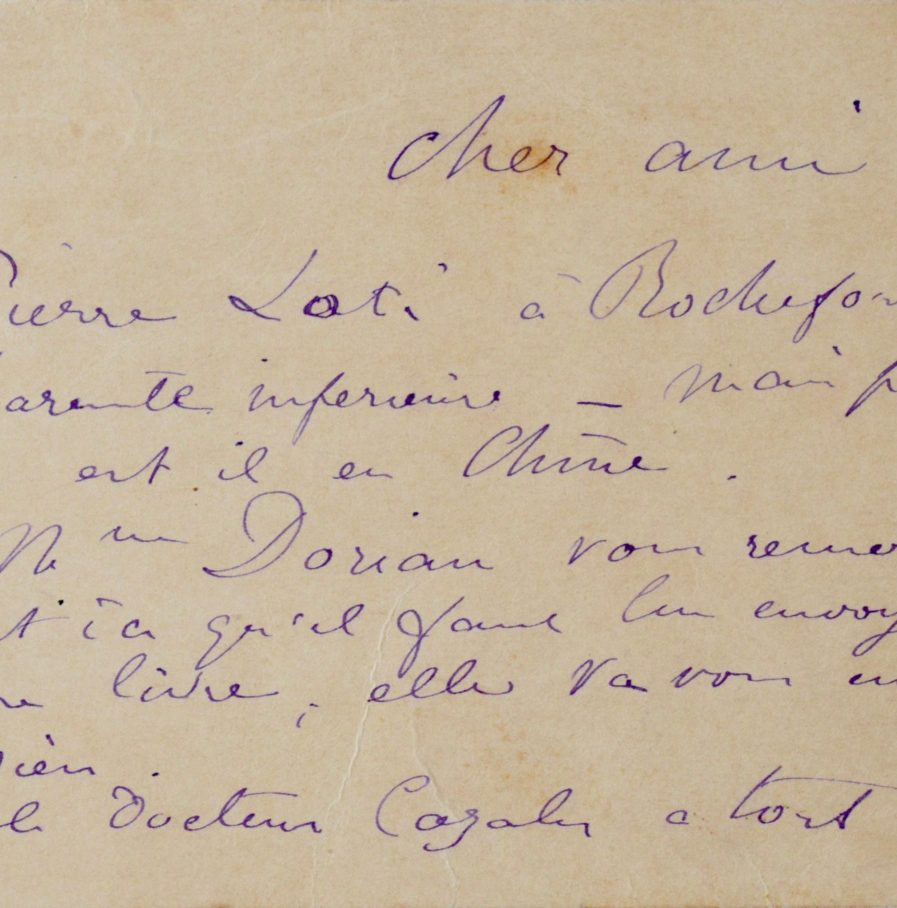 cher ami
Pierre Loti à Rochefor
arente inferieure – mais p
est il en Chine.
Mme Dorian vous remer
t ici qu'il faut lui envoy
re livre, elle va vous en
ien
le Docteur Cazalis a tort